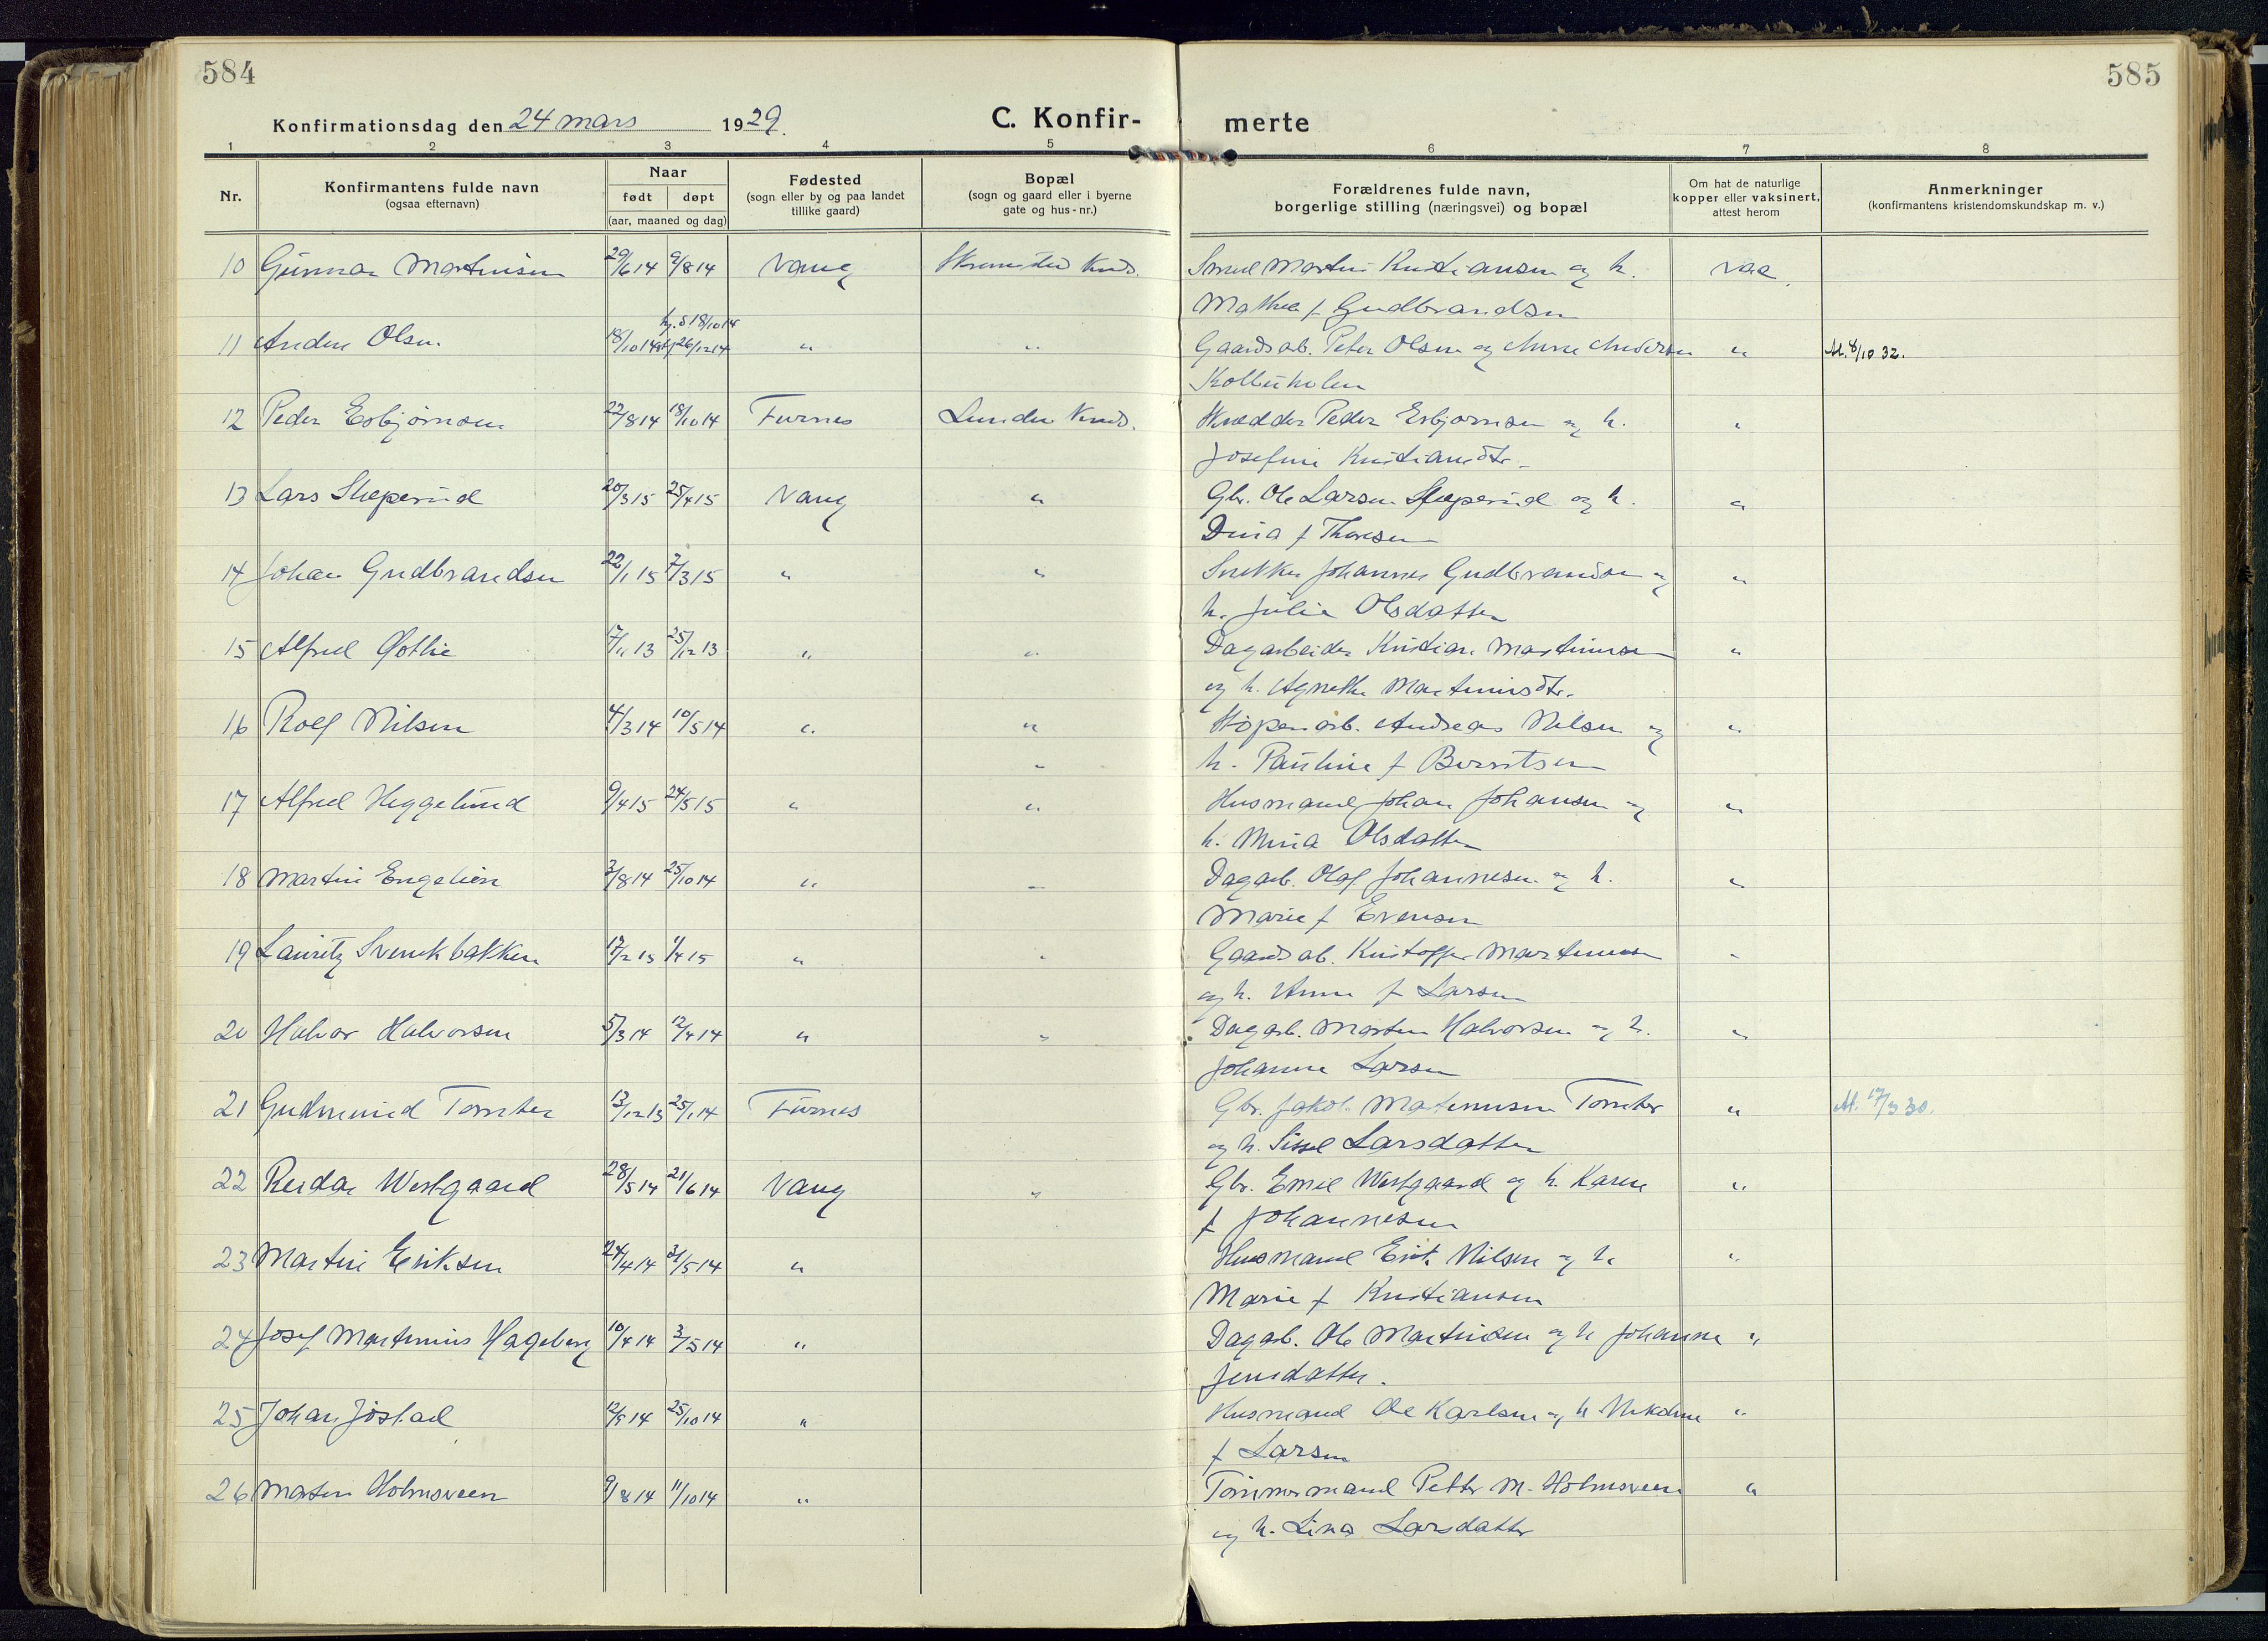 584
585
Konfirmationsdag den 24 mars 1929.
C. Konfir-
merte
1 2 3 4 5 6 7 8
Nr.
Konfirmantens fulde navn
(ogsaa efternavn)
Naar
født døpt
(aar, maaned og dag)
Fødested
(sogn eller by og paa landet
tillike gaard)
Bopæl
(sogn og gaard eller i byerne
gate og hus-nr.)
Forældrenes fulde navn,
borgerlige stilling (næringsvei) og bopæl
Om hat de naturlige
kopper eller vaksinert,
attest herom
Anmerkninger
(konfirmantens kristendomskundskap m. v.)
10 Gunnar Martinsen 29/6 14 9/8 14 Vang Kreds. Martin Kristiansen og h. vac.
Mathea f Gudbrandsen
hj.d 18/10 14
11 Anders Olsen 18/10 14 26/12 14 " " Gaardsarb. Peter Olsen og Anne Andersen " M. 8/10 32.
12 Peder Esbjørnsen 22/8 14 18/10 14 Furnes Kreds. Skrædder Peder Esbjørnsen og h. "
Josefine Kristiansdtr.
13 Lars Skeperud 20/3 15 25/4 15 Vang " Gbr. Ole Larsen Skeperud og h. "
Dina f Thoresen
14 Johan Gudbrandsen 22/1 15 7/3 15 " " Snekker Johannes Gudbrandsen og "
h. Julie Olsdatter
15 Alfred 17/11 13 25/12 13 " " Dagarbeider Kristian Martinsen "
og h. Agnethe Martinusdtr.
16 Rolf Nilsen 4/3 14 10/5 14 " " Andreas Nilsen og "
" h. Pauline f Berntsen
17 Alfred Heggelund 9/4 15 24/5 15 " " Husmand Johan Johansen og "
h. Mina Olsdatter
18 Martin Engelien 3/8 14 25/10 14 " " Dagarb. Olaf Johannesen og h. "
Marie f Evensen
19 Lauritz Svenkbakken 17/2 15 /4 15 " " Gaardsarb. Kristoffer Martinusen "
og h. Anna f Larsen
20 Halvor Halvorsen 5/3 14 12/4 14 " " Dagarb. Martin Halvorsen og h. "
Johanne Larsen
21 Gudmund Tomter 13/12 13 25/1 14 Furnes Gbr. Jakob Martinusen Tomter " M. 17/3 30.
og h. Sissel Larsdatter
22 Reidar Westgaard 28/5 14 21/6 14 Vang " Gbr. Emil Westgaard og h. Karen "
f Johannesen
23 Martin Eriksen 24/4 14 31/5 14 " Husmand Erik Nilsen og h. "
Marie f Kristiansen
24 Josef Martinius Hageberg 10/4 14 3/5 14 " Dagarb. Ole Martinsen og h Johanne "
Jensdatter.
25 Johan Jøstad 12/9 14 25/10 14 " Husmand Ole Karlsen og h Nikoline "
f Larsen
26 Morten Holmsveen 9/8 14 11/10 14 " Tømmermand Petter M. Holmsveen "
og h. Lina Larsdatter